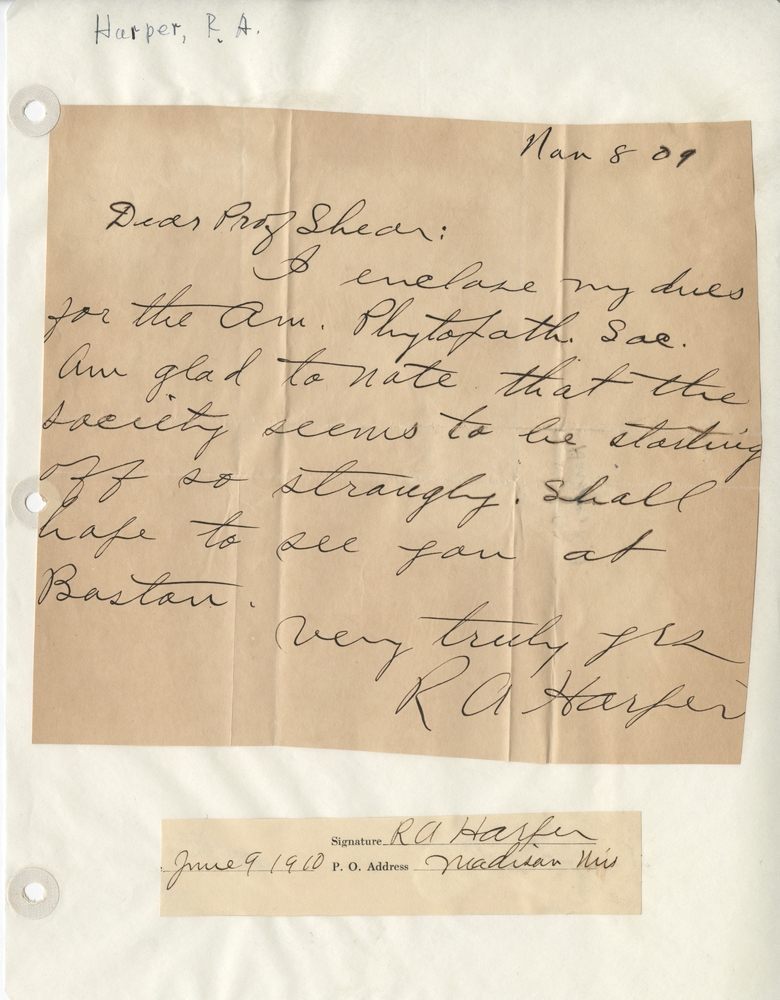 Harper, R. A.
Nov 8 09
Dear Prof Shear:
I enclose my dues
for the Am. Phytopath. Soc.
Am glad to note that the
society seems to be starting
off so strongly. Shall
hope to see you at
Boston.
Very truly yrs
R A Harper
Signature R A Harper
June 9 1910 P. O. Address Madison Wis